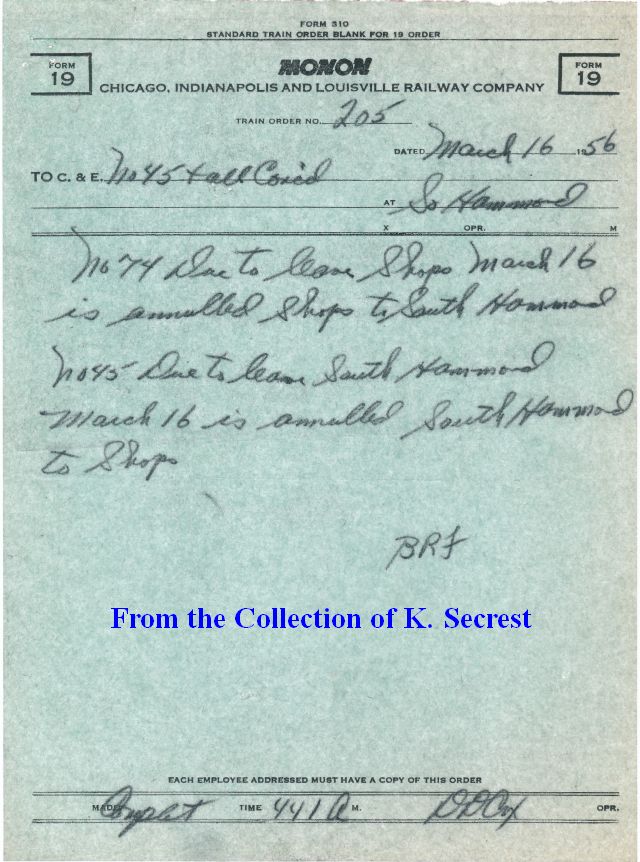 FORM 310
STANDARD TRAIN ORDER BLANK FOR 19 ORDER
FORM 19
MONON
FORM 19
CHICAGO, INDIANAPOLIS AND LOUISVILLE RAILWAY COMPANY
TRAIN ORDER NO. 205
DATED March 16 1956
TO C. & E. No 45 & all Conc'd
AT So Hammond
X OPR. M
No 74 Due to leave Shops March 16
is annulled Shops to South Hammond
No 45 Due to leave South Hammond
March 16 is annulled South Hammond
to Shops
BRF
From the Collection of K. Secrest
EACH EMPLOYEE ADDRESSED MUST HAVE A COPY OF THIS ORDER
MADE Complet TIME 441 A M. DD Cox OPR.